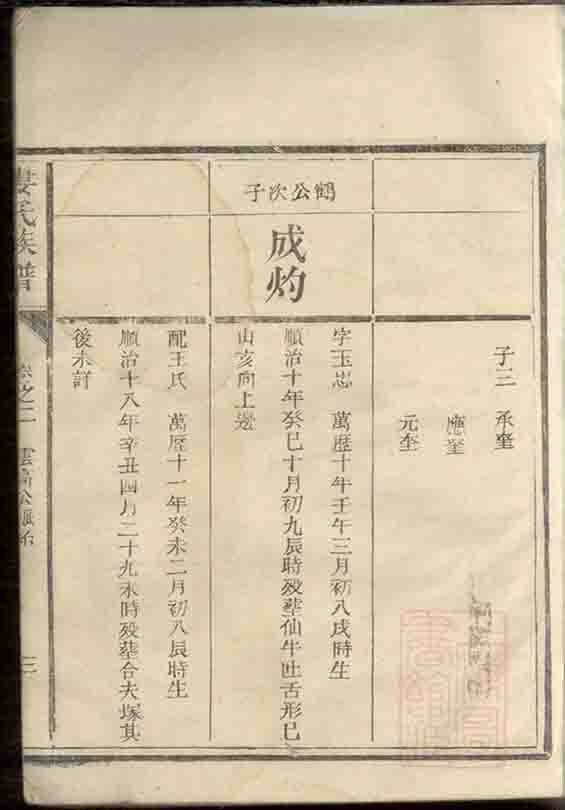 子三 承奎
應奎
元奎
鶴公次子
成灼
字玉忠 萬歷十年壬午三月初八戌時生
順治十年癸巳十月初九辰時殁塟仙牛吐舌形巳
山亥向上邊
配王氏 萬歷十一年癸未二月初八辰時生
順治十八年辛丑四月二十九未時殁塟合夫塚其
後未詳
氏族譜
卷之二
三